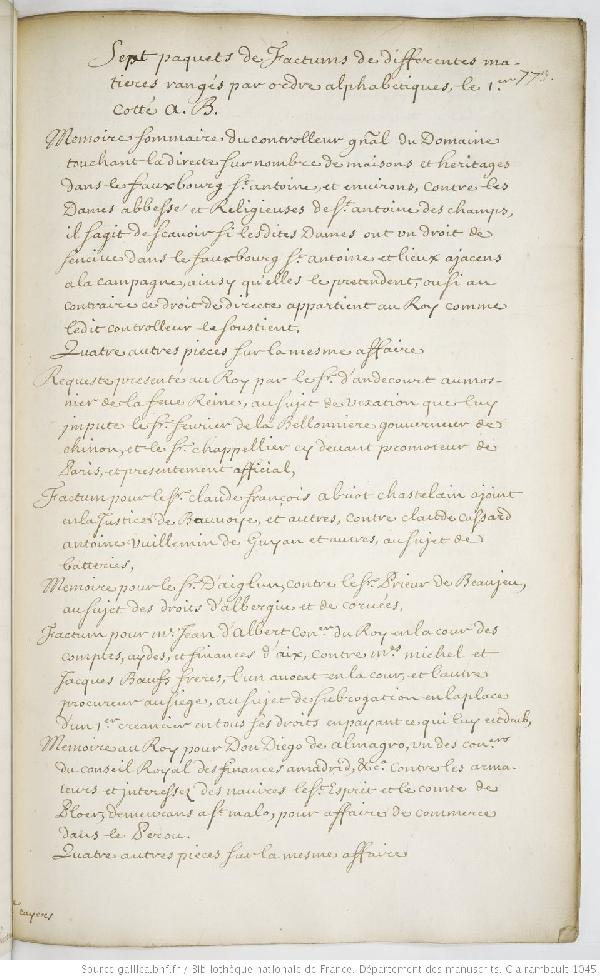 Sept paquets de Factums de differentes ma-
tieres rangés par ordre alphabetiques, le 1.er 773.
Cotté A. B.
Memoire sommaire du controlleur gñal du Domaine
touchant la directe sur nombre de maisons et heritages
dans le fauxbourg St. antoine, et environs, contre les
Dames abbesse et Religieuses de St. antoine des champs,
il sagit de scavoir si lesdites Dames ont un droit de
sencive dans le fauxbourg St. antoine et lieux ajacens
a la campagne ainsy quelles le pretendent, ou si au
contraire ce droit de directe appartient au Roy comme
ledit controlleur le soustient.
Quatre autres pieces sur la mesme affaire
Requeste presenté au Roy par le Sr. d'andecourt aumos-
nier de la feue Reine, au sujet de vexation que luy
impute le Sr. fevrier de la Bellonniere gouverneur de
chinon, et le Sr. chappellier cy devant promoteur de
Paris, et presentement official,
Factum pour le Sr. claude françois abriot chastelain ajoint
en la Justice de Beauvoise, et autres, contre claude cassard
antoine vuillemin de Guyan et autres, au sujet de
batteries,
Memoire pour le Sr. D'aiglun, contre le Sr. Prieur de Beaujeu,
au sujet des droits d'albergue et de corvées,
Factum pour mr. Jean d'Albert Coner. du Roy en la cour des
comptes, aydes, et finances d'aix, contre mes. michel et
Jacques Bœufs freres, l'un avocat en la cour, et l'autre
procureur au siege, au sujet de subrogation en la place
d'un 1er creancier en tous ses droits en payant ce qui luy est dub,
Memoire au Roy pour Don Diego de almagro, un des coners
du conseil Royal des finances a madrid, &c. contre les arma-
teurs et interessez des navires le St. Esprit et le comte de
demeurans a St. malo, pour affaire de commerce
dans le Perou.
Quatre autres pieces sur la mesme affaire
cayers
Source gallica.bnf.fr / Bibliothèque nationale de France. Département des manuscrits. Clairambault 1045